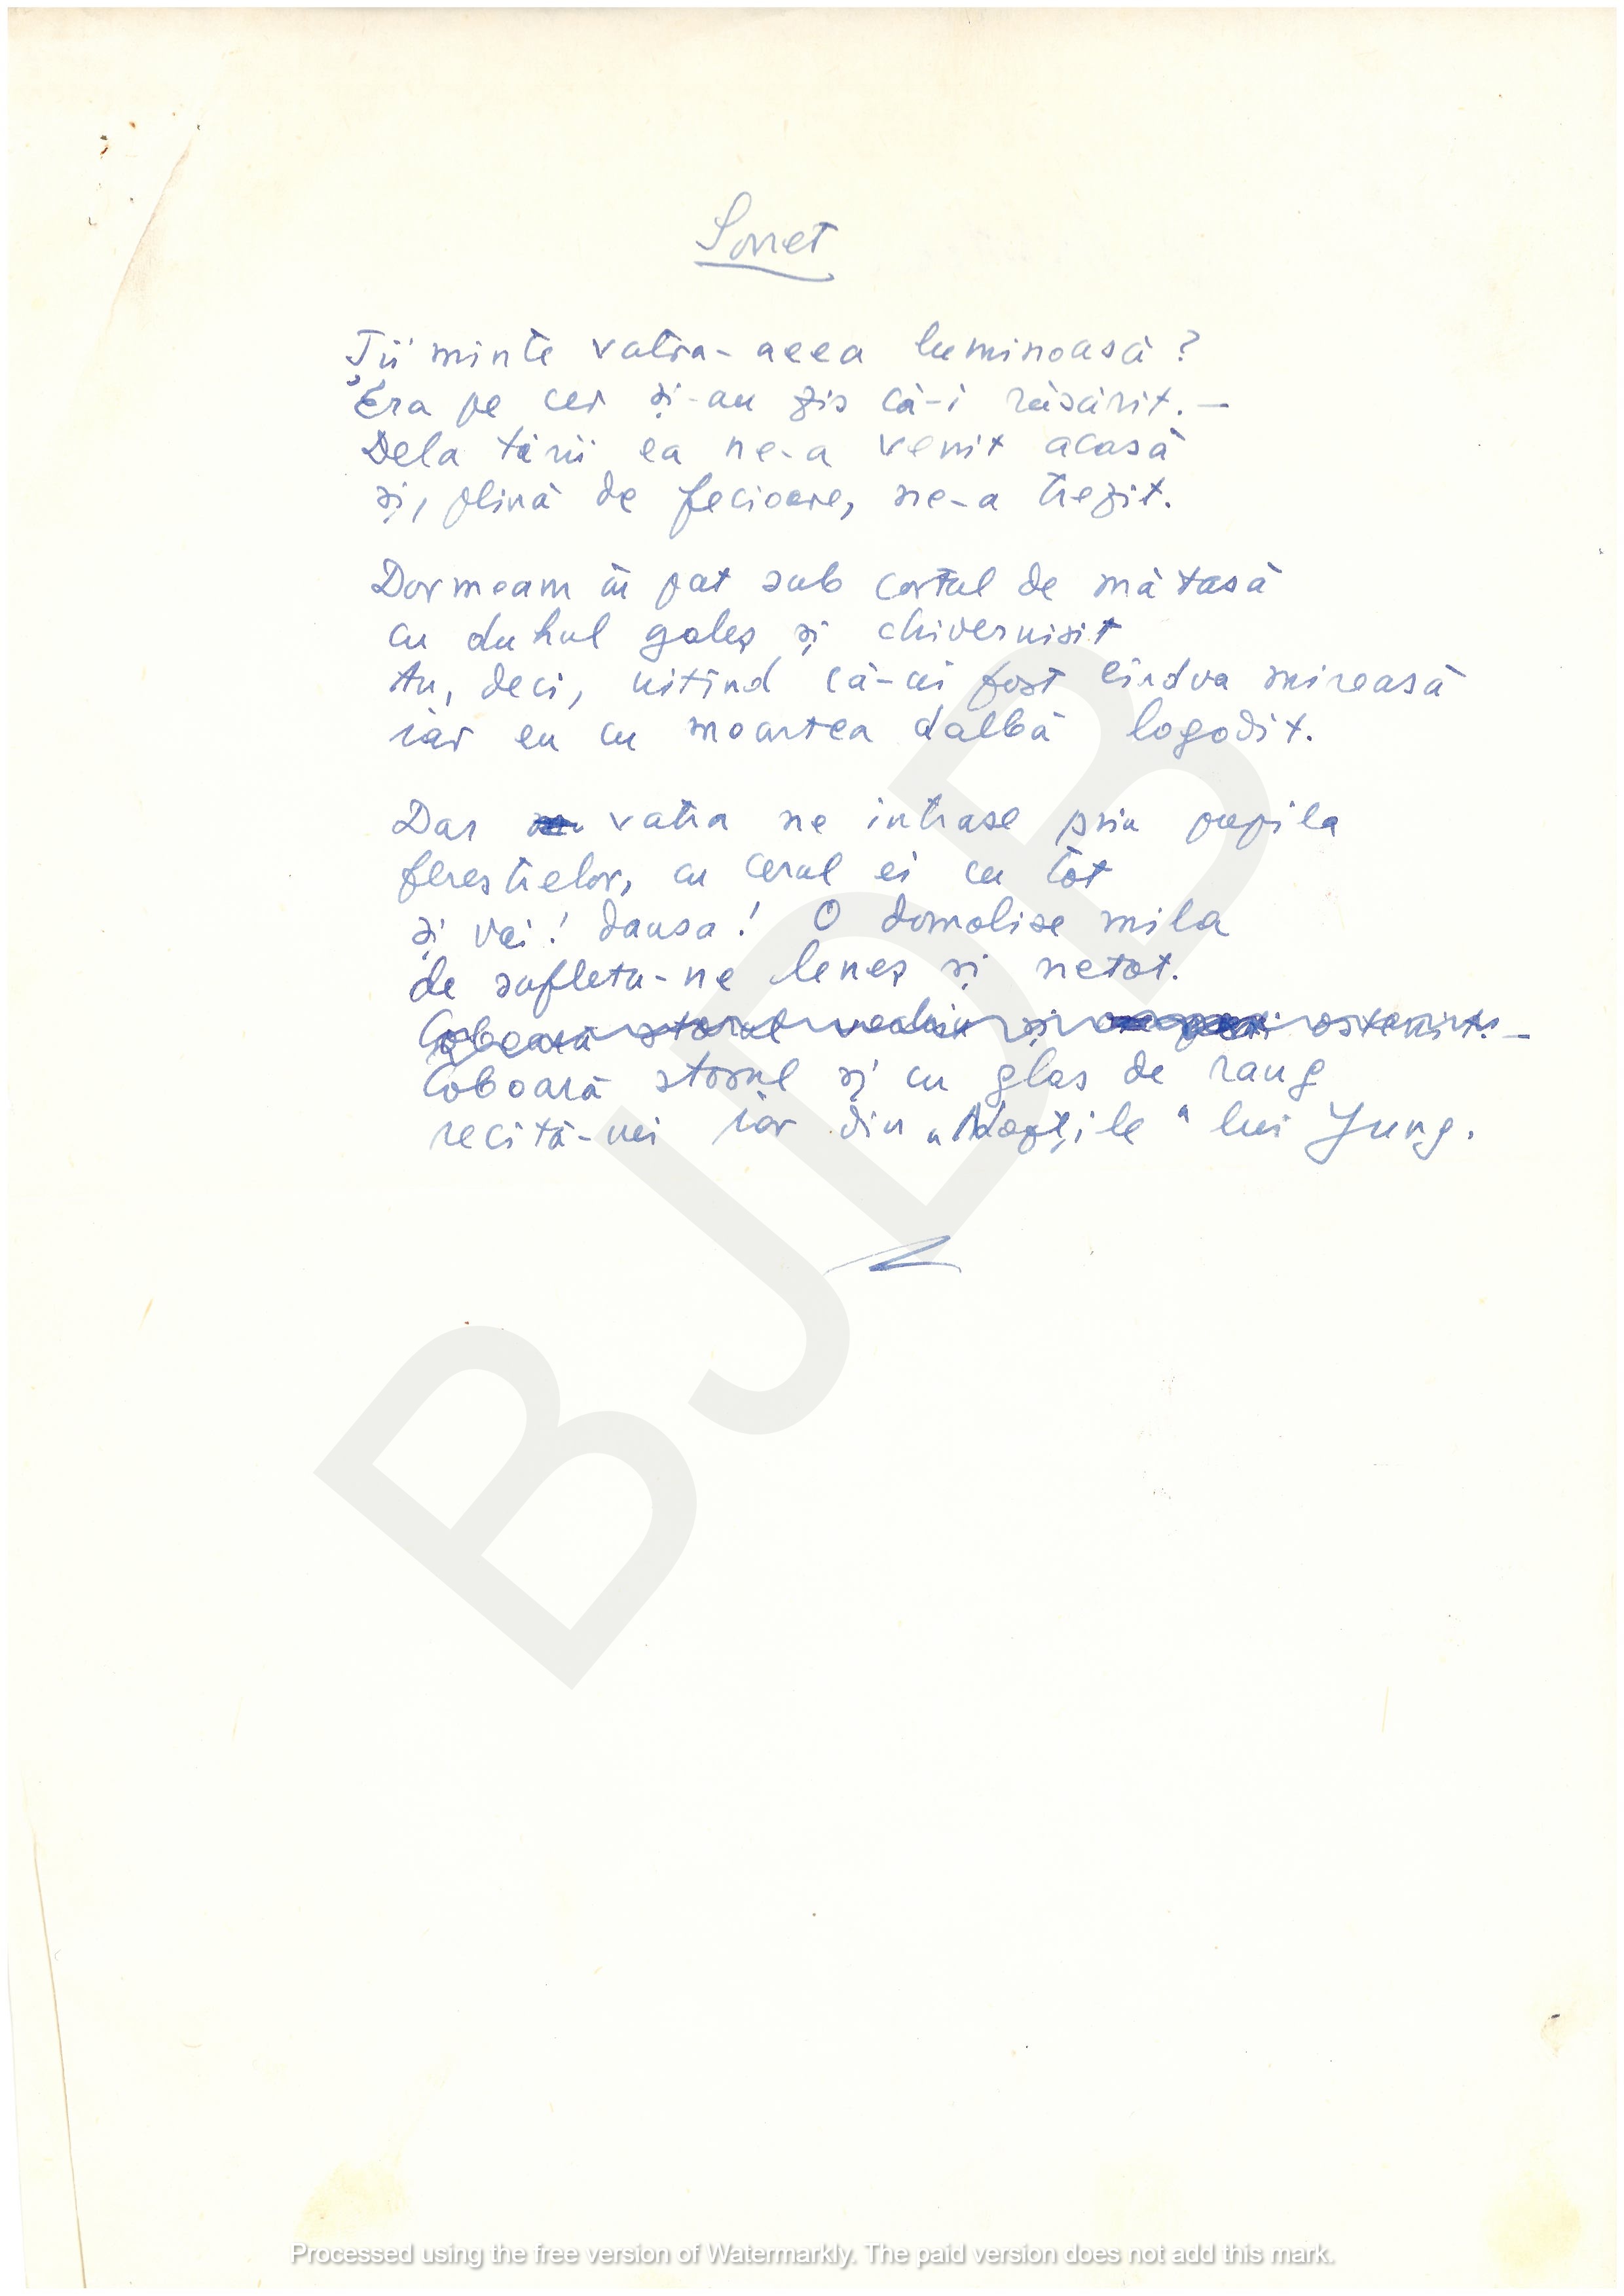 Sonet
Ții minte vatra-aceea luminoasă?
Era pe cer și-au zis că-i răsărit.—
Dela tării ea ne-a venit acasă
și, plină de fecioare, ne-a trezit.
Dormeam în pat sub cortul de mătasă
cu duhul galeș și chivernisit
tu, deci, uitînd că-ai fost cîndva mireasă
iar eu cu moartea dalbă logodit.
Dar vatra ne intrase prin pupila
ferestrelor, cu cerul ei cu tot
și vai! dansa! O domolise mila
de sufletu-ne leneș și netot.
Coboară storul vechiu și ostenit.—
Coboară storul și cu glas de rang
recită-mi iar din „Nopțile" lui Jung.
BJDB
Processed using the free version of Watermarkly. The paid version does not add this mark.